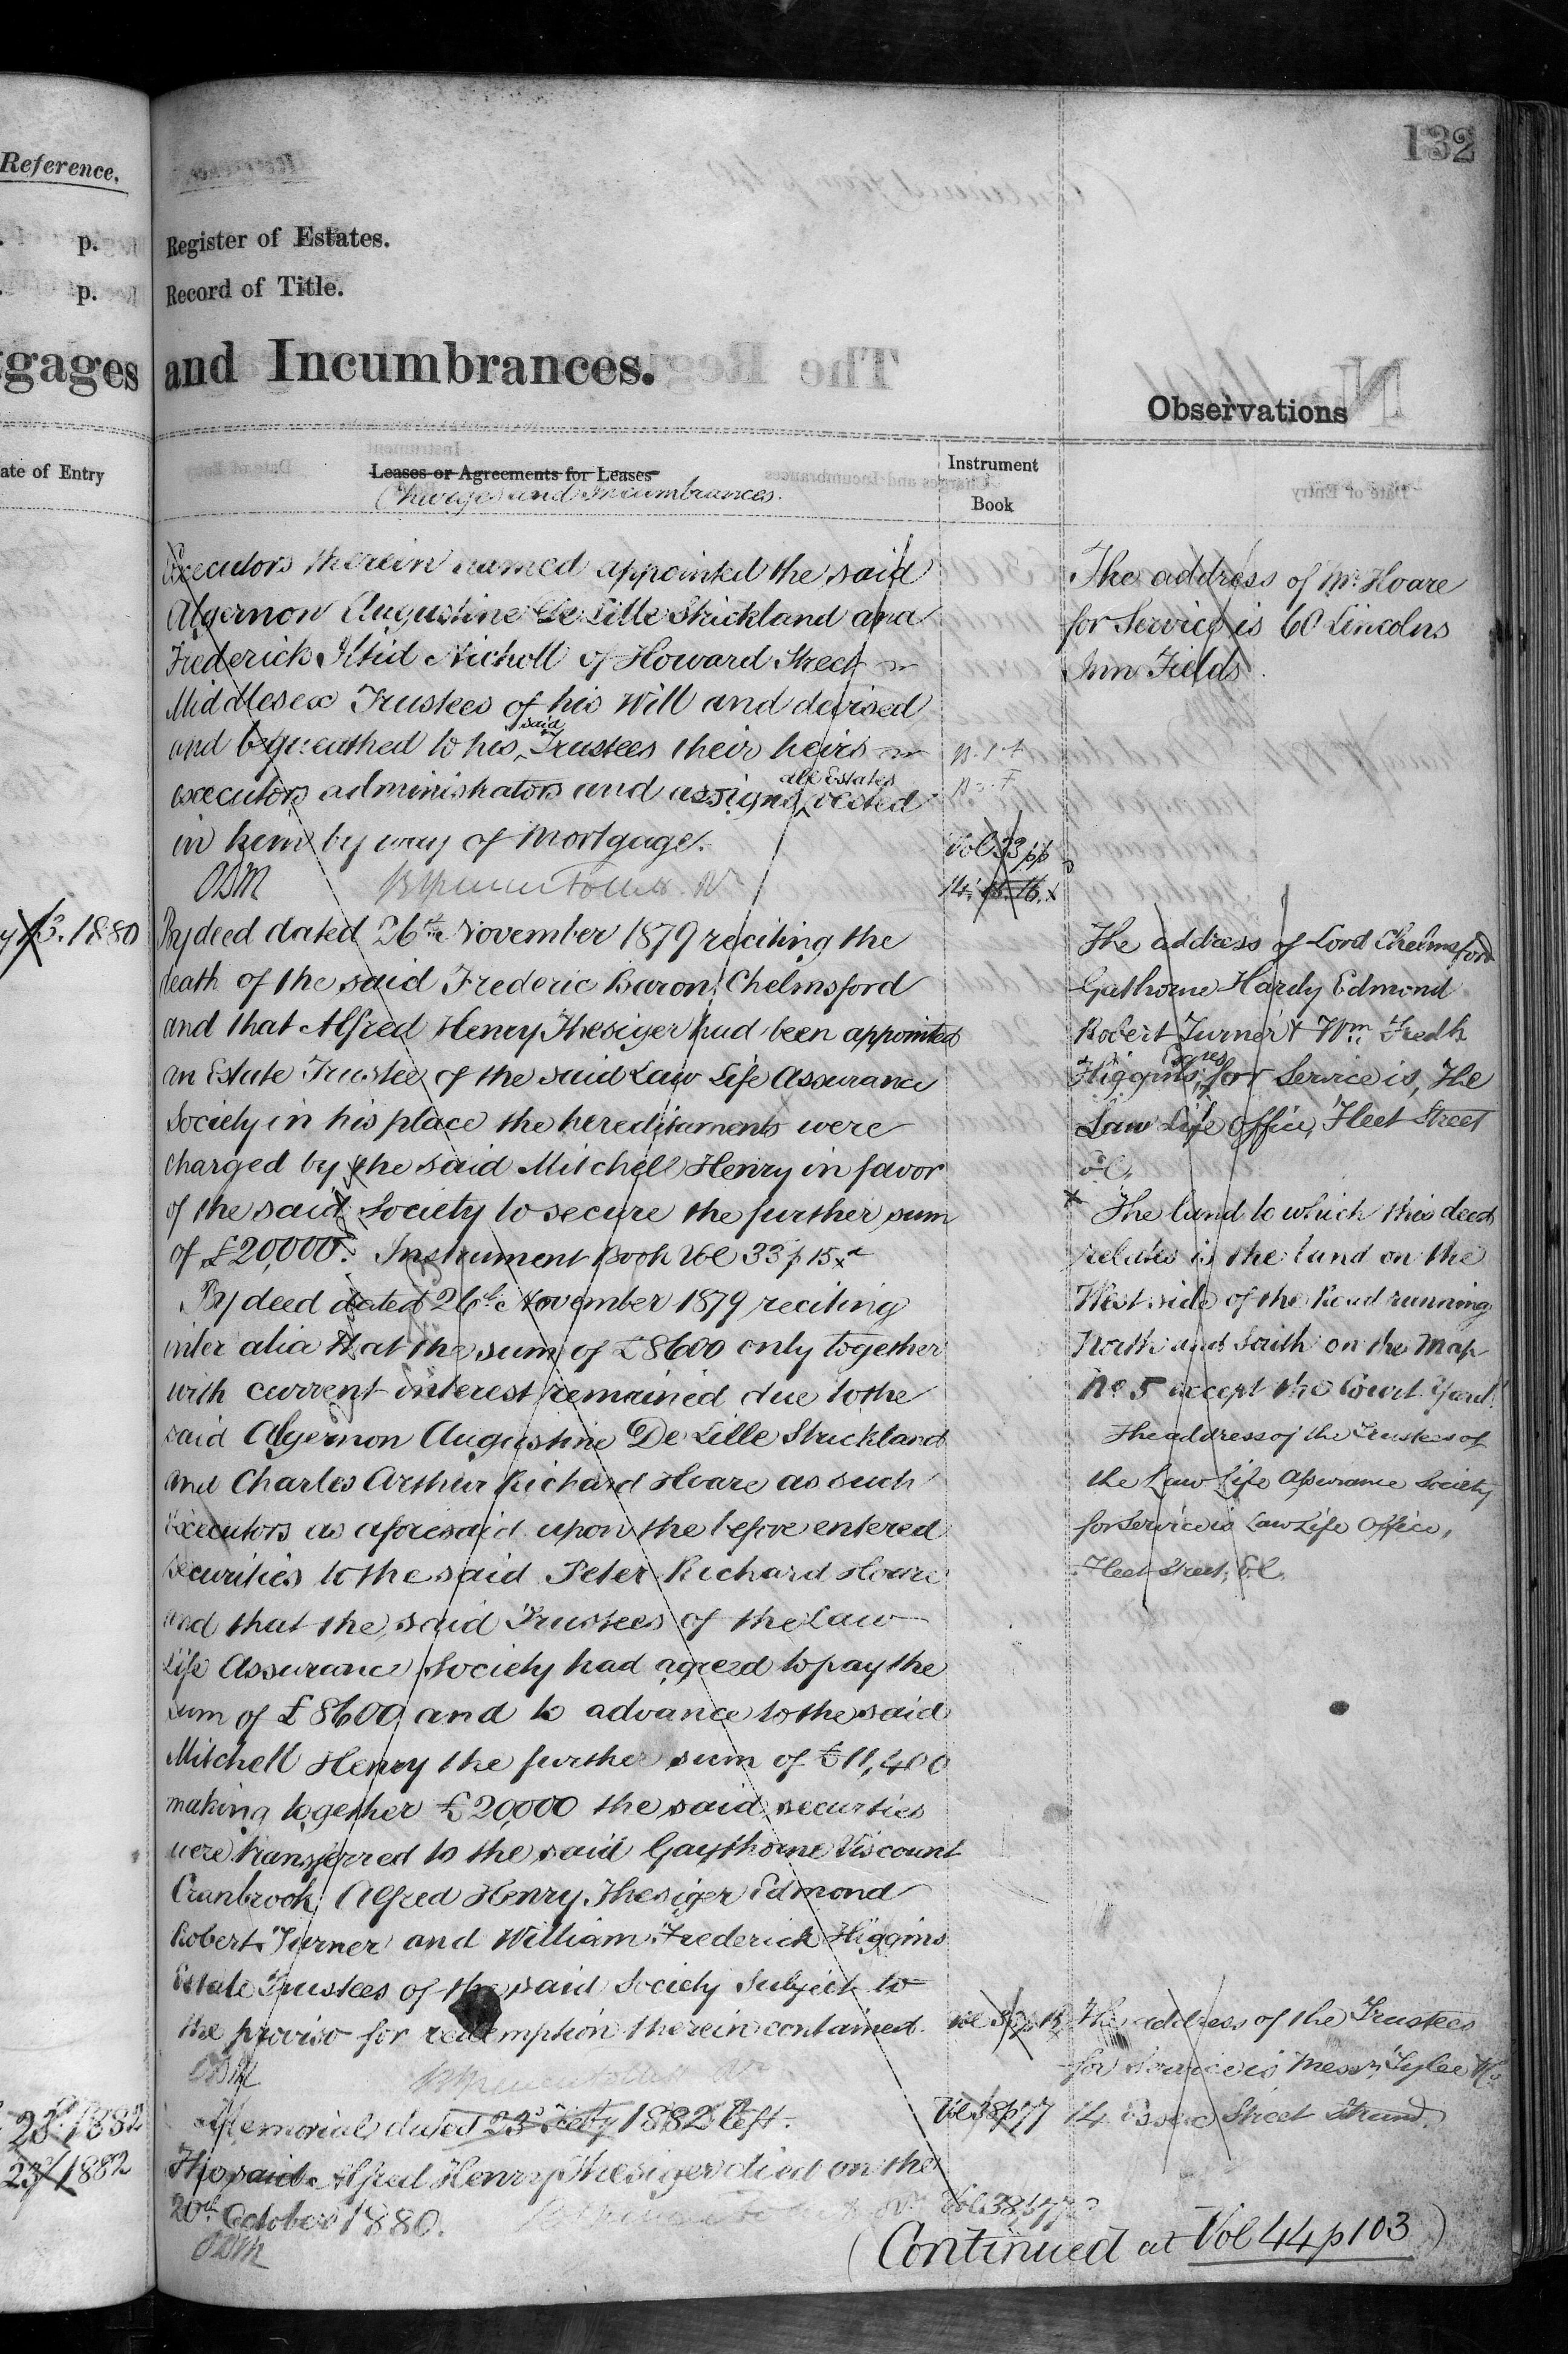 132
Reference.
p.
p.
gages
ate of Entry
13. 1880
23d 1882
23d/1882
Register of Estates.
Record of Title.
and Incumbrances.
Leases or Agreements for Leases
Charges and Incumbrances.
Instrument
Book
Observations
Executors therein named appointed the said
Algernon Augustine De Lille Strickland and
Frederick Iltid Nicholl of Howard Street
Middlesex Trustees of his Will and devised
and bequeathed to his said Trustees their heirs
executors administrators and assigns all Estates vested
in him by way of Mortgage.
Vol 33 pp
14. 15. 16. x
By deed dated 26th November 1879 reciting the
death of the said Frederic Baron Chelmsford
and that Alfred Henry Thesiger had been appointed
an Estate Trustee of the said Law Life Assurance
Society in his place the hereditaments were
charged by the said Mitchell Henry in favor
of the said Society to secure the further sum
of £20,000. Instrument Book Vol 33 p 15 x
By deed dated 26th November 1879 reciting
inter alia that the sum of £8600 only together
with current interest remained due to the
said Algernon Augustine De Lille Strickland
and Charles Arthur Richard Hoare as such
Executors as aforesaid upon the before entered
securities to the said Peter Richard Hoare
and that the said Trustees of the Law
Life Assurance Society had agreed to pay the
sum of £8600 and to advance to the said
Mitchell Henry the further sum of £11,400
making together £20,000 the said securties
were transferred to the said Gaythorne Viscount
Cranbrook, Alfred Henry Thesiger Edmond
Robert Turner and William Frederick Higgins
Estate Trustees of the said Society Subject to
the proviso for redemption therein contained.
Memorial dated 23d 1882 left.
Vol 38 p 77
The said Alfred Henry Thesiger died on the
20th October 1880.
Vol 38 p 77
The address of Mr. Hoare
for Service is 60 Lincolns
Inn Fields.
The address of Lord Chelmsford
Gathorne Hardy Edmond
Robert Turner & Wm. Fredk
Higgins Esqres for Service is, The
Law Life Office, Fleet Street
E.C.
x The land to which this deed
relates is the land on the
West side of the Road running
North and South on the Map
No 5 except the Court Yard.
The address of the Trustees of
the Law Life Assurance Society
for Service is Law Life Office,
Fleet Street, E.C.
The address of the Trustees
for Service is Messrs Tylee &
14 Essex Street Strand.
(Continued at Vol 44 p 103)